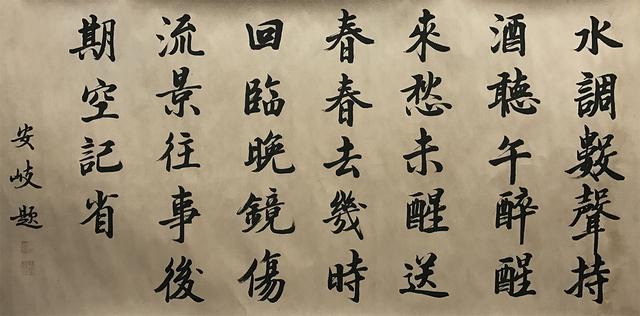 水調數聲持
酒聽午醉醒
來愁未醒送
春春去幾時
回臨晚鏡傷
流景往事後
期空記省
安岐題